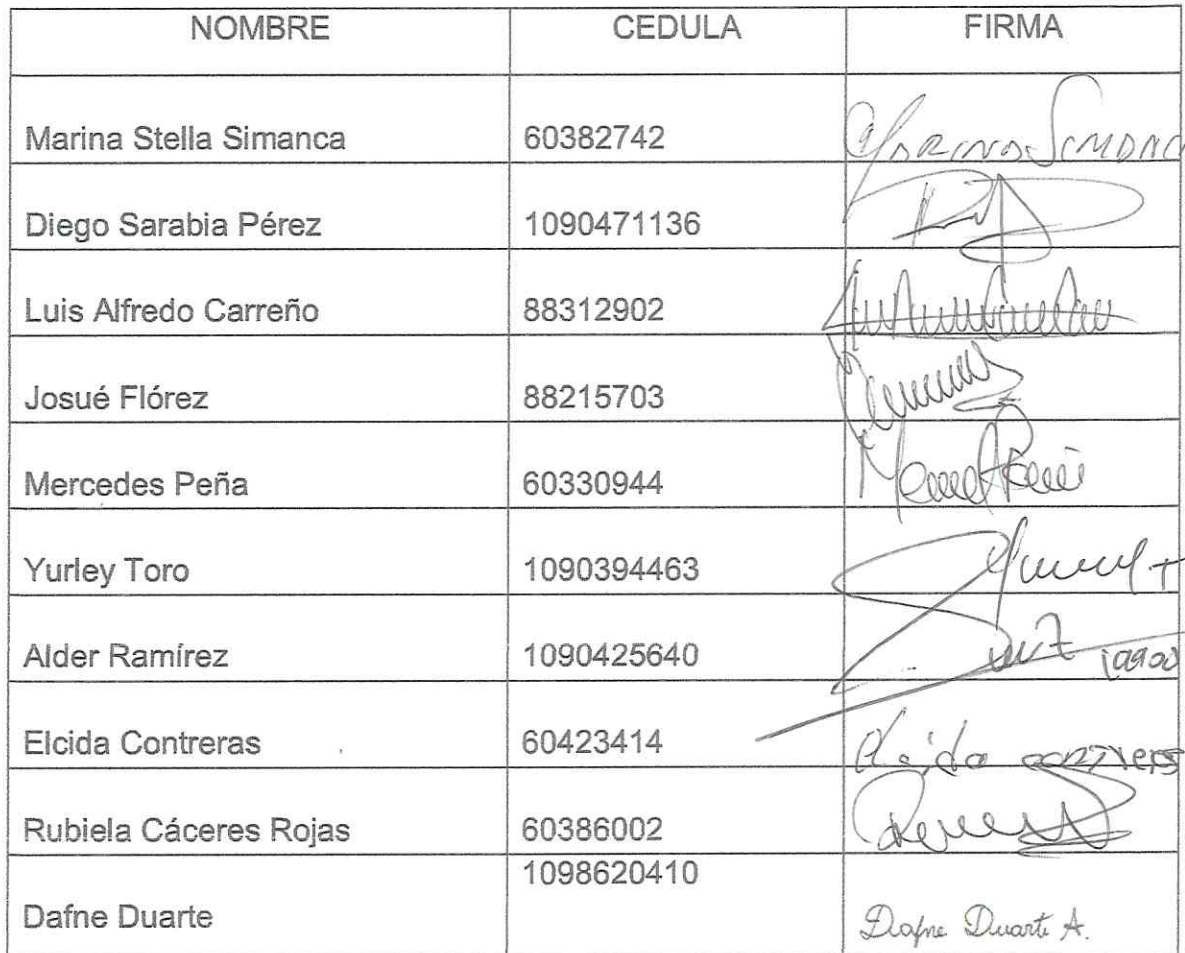 NOMBRE CEDULA FIRMA
Marina Stella Simanca 60382742 Marina Simanc
Diego Sarabia Pérez 1090471136
Luis Alfredo Carreño 88312902
Josué Flórez 88215703
Mercedes Peña 60330944
Yurley Toro 1090394463
Alder Ramírez 1090425640
Elcida Contreras 60423414
Rubiela Cáceres Rojas 60386002
1098620410
Dafne Duarte Dafne Duarte A.